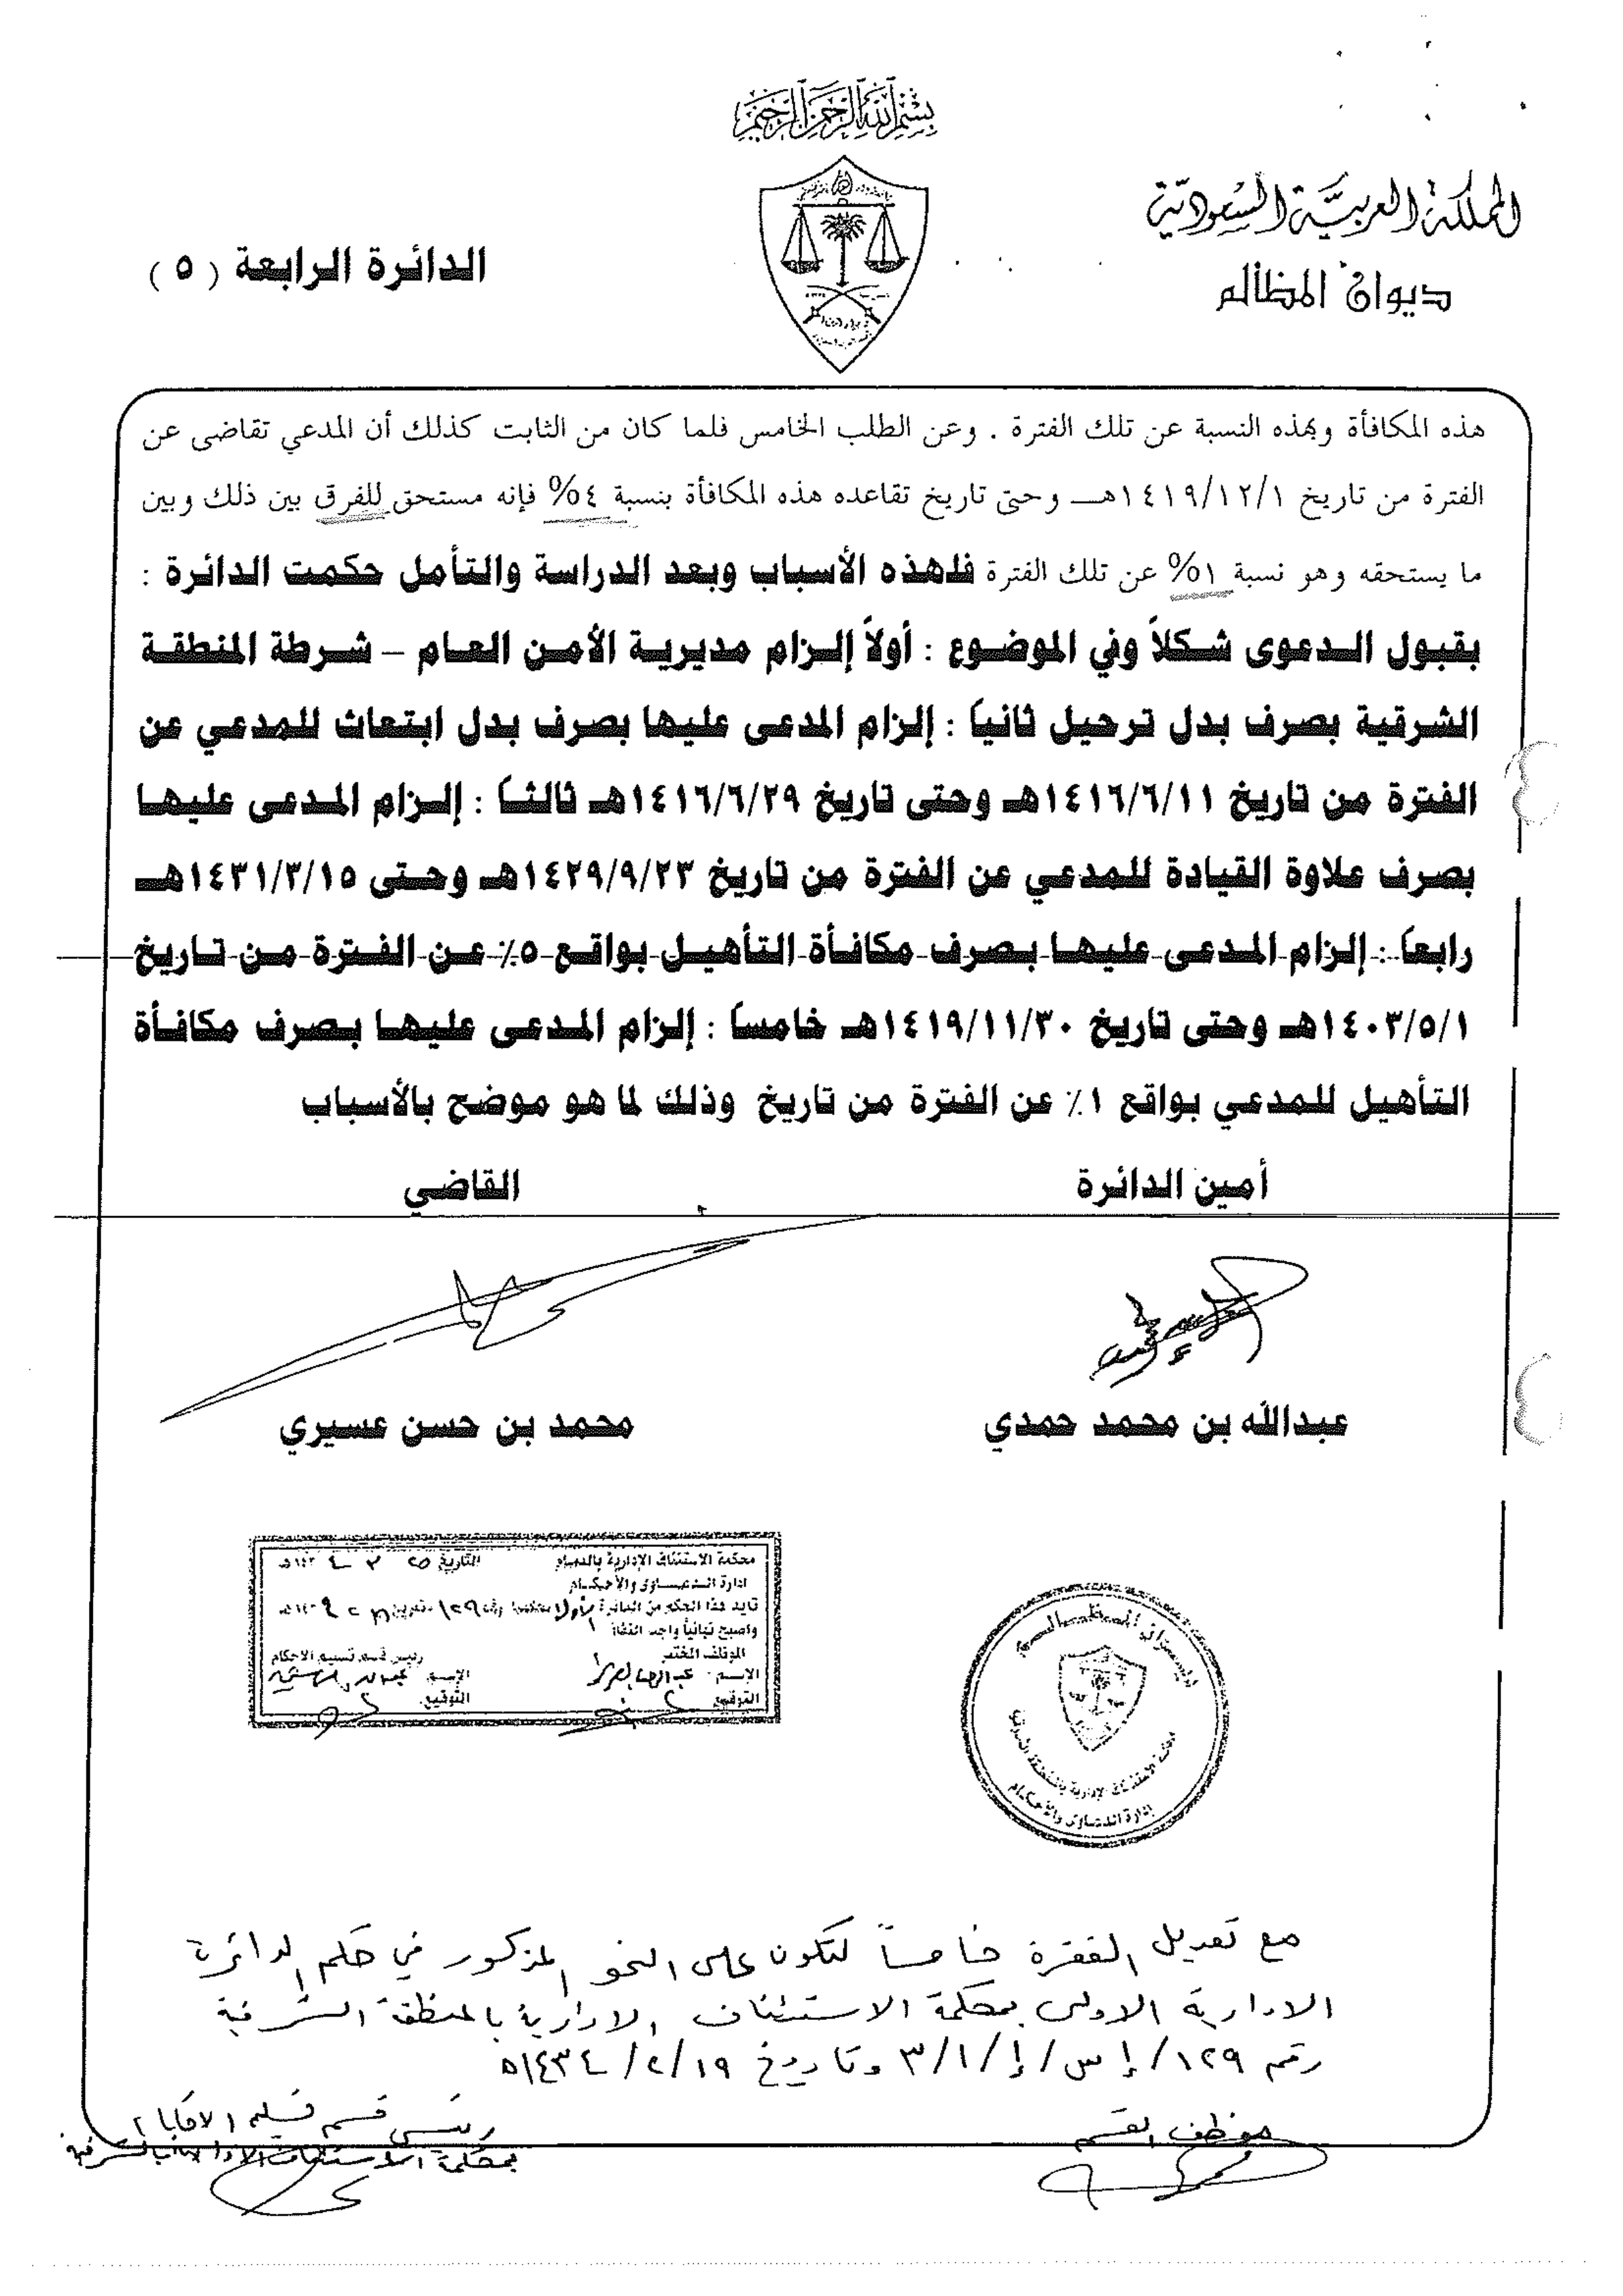 بسم الله الرحمن الرحيم
المملكة العربية السعودية
ديوان المظالم
الدائرة الرابعة ( ٥ )
هذه المكافأة وبهذه النسبة عن تلك الفترة . وعن الطلب الخامس فلما كان من الثابت كذلك أن المدعي تقاضى عن
الفترة من تاريخ ١٤١٩/١٢/١هـ وحتى تاريخ تقاعده هذه المكافأة بنسبة ٤% فإنه مستحق للفرق بين ذلك وبين
ما يستحقه وهو نسبة ١% عن تلك الفترة فلهذه الأسباب وبعد الدراسة والتأمل حكمت الدائرة :
بقبول الدعوى شكلاً وفي الموضوع : أولاً إلزام مديرية الأمن العام – شرطة المنطقة
الشرقية بصرف بدل ترحيل ثانياً : إلزام المدعى عليها بصرف بدل ابتعاث للمدعي عن
الفترة من تاريخ ١٤١٦/٦/١١هـ وحتى تاريخ ١٤١٦/٦/٢٩هـ ثالثاً : إلزام المدعى عليها
بصرف علاوة القيادة للمدعي عن الفترة من تاريخ ١٤٢٩/٩/٢٣هـ وحتى ١٤٣١/٣/١٥هـ
رابعاً : إلزام المدعى عليها بصرف مكافأة التأهيل بواقع ٥٪ عن الفترة من تاريخ
١٤٠٣/٥/١هـ وحتى تاريخ ١٤١٩/١١/٣٠هـ خامساً : إلزام المدعى عليها بصرف مكافأة
التأهيل للمدعي بواقع ١٪ عن الفترة من تاريخ وذلك لما هو موضح بالأسباب
أمين الدائرة
القاضي
عبدالله بن محمد حمدي
محمد بن حسن عسيري
محكمة الاستئناف الإدارية بالدمام التاريخ
إدارة الدعاوى والأحكام
تأيد هذا الحكم من الدائرة الأولى
وأصبح نهائياً واجب النفاذ
الموظف المختص رئيس قسم تسليم الأحكام
الإسم الإسم
التوقيع التوقيع
ديوان المظالم
محكمة الاستئناف الإدارية بالمنطقة الشرقية
إدارة الدعاوى والأحكام
مع تعديل الفقرة خامساً لتكون على النحو المذكور في حكم الدائرة
الادارية الاولى بمحكمة الاستئناف الادارية بالمنطقة الشرقية
رقم ١٢٩/إس/إ/٣/١ وتاريخ ١٩/٢/١٤٣٤هـ
موظف القسم
رئيس قسم تسليم
بمحكمة الاستئناف الادارية بالشرقية